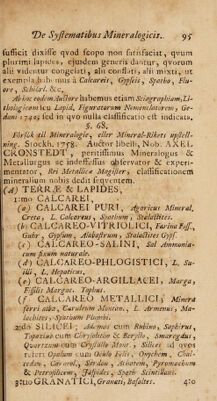 De Systematibus Mineralogicis. 95
sufficit dixisse quod scopo non satisfaciat, qvum
plurimi lapides, ejusdem generis dantur, qvorum
alii videntur congelati, alii constati, alii mixti, ut
exempla habemus à Calcareis, Gypseis, Spatho, Flu-
ore, Schisto. &c.
Ab hoc eodem Auctore habemus etiam Sciagraphiam, Li-
thologicam seu Lapid. Figuratorum Nomenclatorem, Ge-
dani 1740; sed in qvo nulla classificatio est indicata.
§. 68.
Försök til Mineralogie, eller Mineral-Rikets upställ-
ning. Stockh. 1758. Auctor libelli, Nob. AXEL
CRONSTEDT, peritissimus Mineralogus &
Metallurgus ac indefessus observator & experi-
mentator, Rei Metallicæ Magister, classificationem
mineralium nobis dedit seqventem.
(A) TERRÆ & LAPIDES,
1:mo CALCAREI,
(a) CALCAREI PURI, Agaricus Mineral,
Creta, L. Calcareus, Spathum, Stalactites.
(b) CALCAREO-VITRIOLICI, Farina Foss,
Guhr, Gypsum, Alabastrum, Stalactites Gyps.
(c) CALCAREO-SALINI, Sal Ammonia-
cum fixum naturale.
(d) CALCAREO-PHLOGISTICI, L. Su-
illi, L. Hepaticus,
(e) CALCAREO-ARGILLACEI, Marga,
Fissilis Margac. Tophus.
(f) CALCAREO METALLICI, Minera
ferri alba, Cæruleum Montan. L. Armenus, Ma-
lachites, Spathum Plumbi.
2:do SILICEI; Adamas cum Rubino, Saphirus,
Topazius cum Chrysolitho & Beryllo, Smaragdus,
Quartzum cum Crystallo Mont., Silices ad qvos
refert Opalum cum Oculo Felis, Onychem, Chal-
cedon, Carneol, Sardon, Achatem, Pyromachum
& Petrosilicem, Jaspides, Spath Scintillans.
3:tio GRANATICI, Granati, Basaltes. 4:to